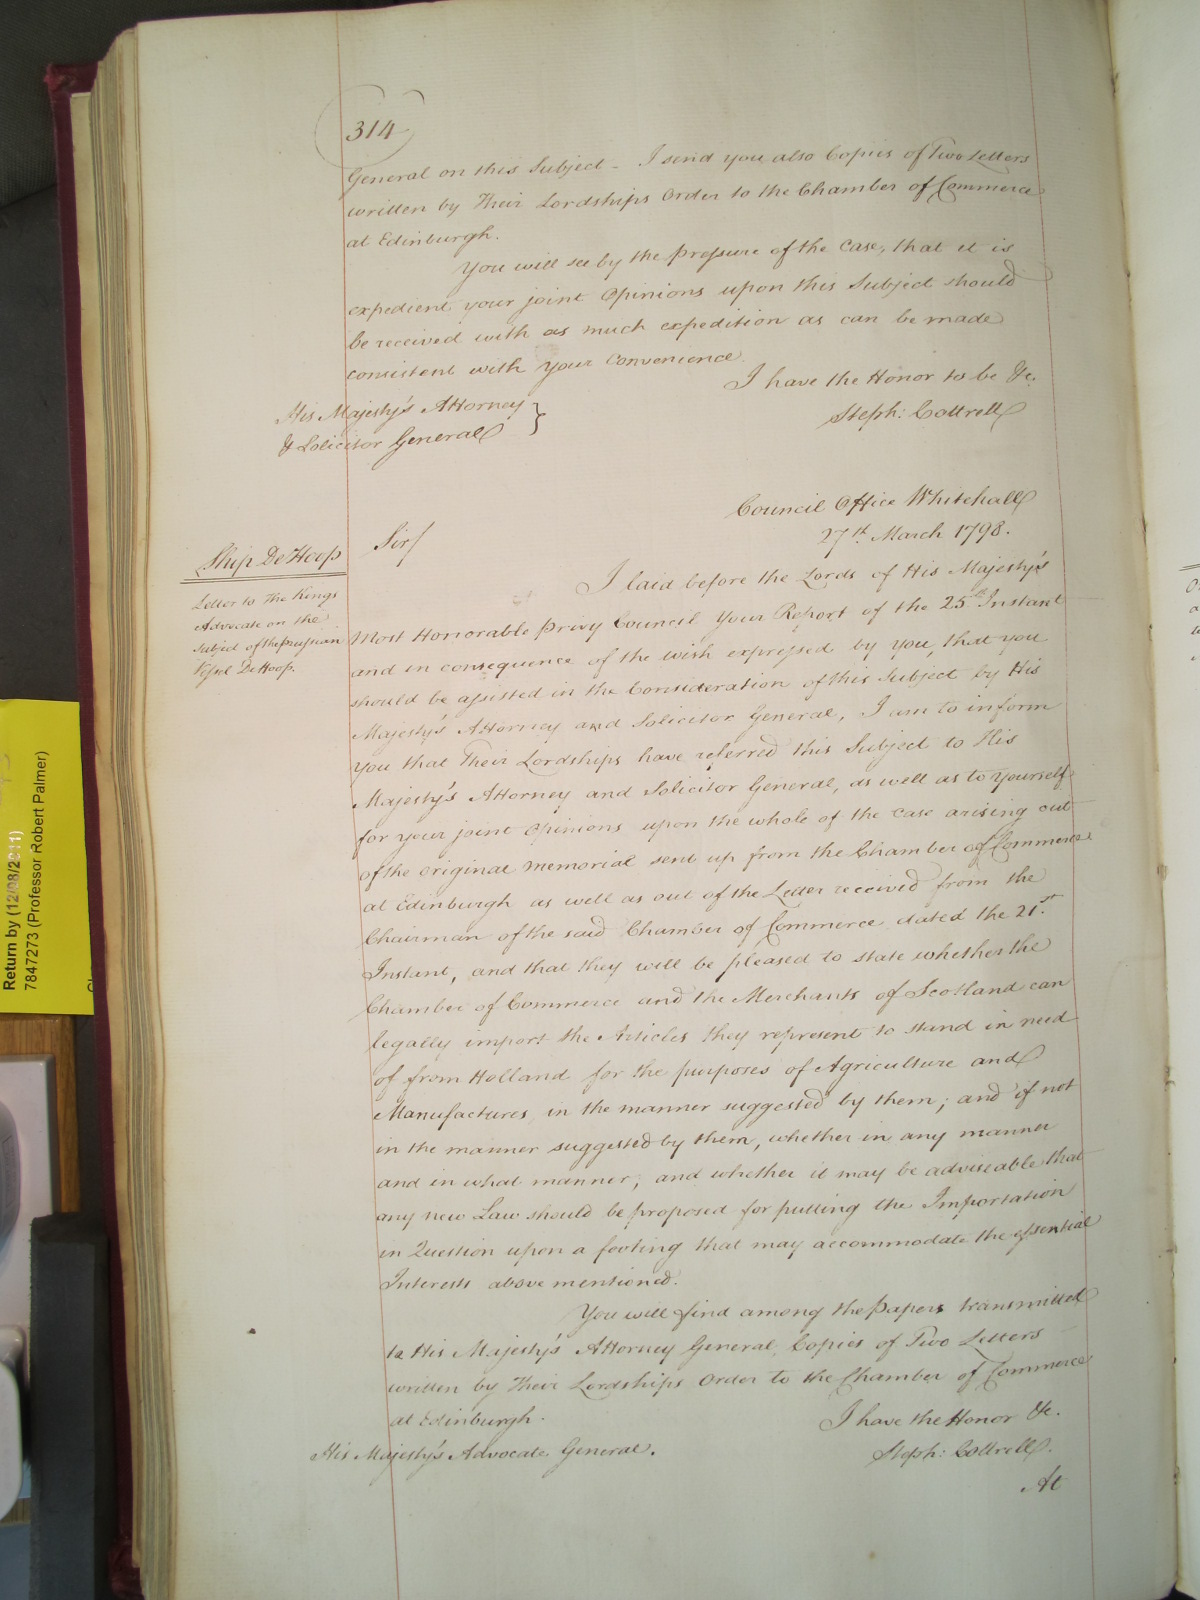 314
General on this Subject - I send you also Copies of Two Letters
written by Their Lordships Order to the Chamber of Commerce
at Edinburgh.
You will see by the pressure of the Case, that it is
expedient your joint Opinions upon this Subject should
be received with as much expedition as can be made
consistent with your Convenience.
I have the Honor to be &c.
Steph: Cottrell
His Majesty's Attorney
& Solicitor General }
Council Office Whitehall
27th. March 1798.
Ship De Hoop
Letter to The Kings
Advocate on the
Subject of the prussian
Vessel De Hoop.
Sir/
I laid before the Lords of His Majesty's
Most Honorable Privy Council Your Report of the 25th Instant
and in consequence of the wish expressed by you, that you
should be assisted in the Consideration of this Subject by His
Majesty's Attorney and Solicitor General, I am to inform
you that Their Lordships have referred this Subject to His
Majesty's Attorney and Solicitor General, as well as to yourself
for your joint Opinions upon the whole of the Case arising out
of the original Memorial sent up from the Chamber of Commerce
at Edinburgh as well as out of the Letter received from the
Chairman of the said Chamber of Commerce dated the 21st.
Instant, and that they will be pleased to state whether the
Chamber of Commerce and the Merchants of Scotland can
legally import the Articles they represent to stand in need
of from Holland for the purposes of Agriculture and
Manufactures, in the manner suggested by them; and if not
in the manner suggested by them, whether in any manner
and in what manner; and whether it may be adviseable that
any new Law should be proposed for putting the Importation
in Question upon a footing that may accommodate the essential
Interests above mentioned.
You will find among the Papers transmitted
to His Majesty's Attorney General, Copies of Two Letters
written by Their Lordships Order to the Chamber of Commerce
at Edinburgh.
I have the Honor &c.
His Majesty's Advocate General.
Steph: Cottrell.
At
Return by (12/08/2011)
7847273 (Professor Robert Palmer)